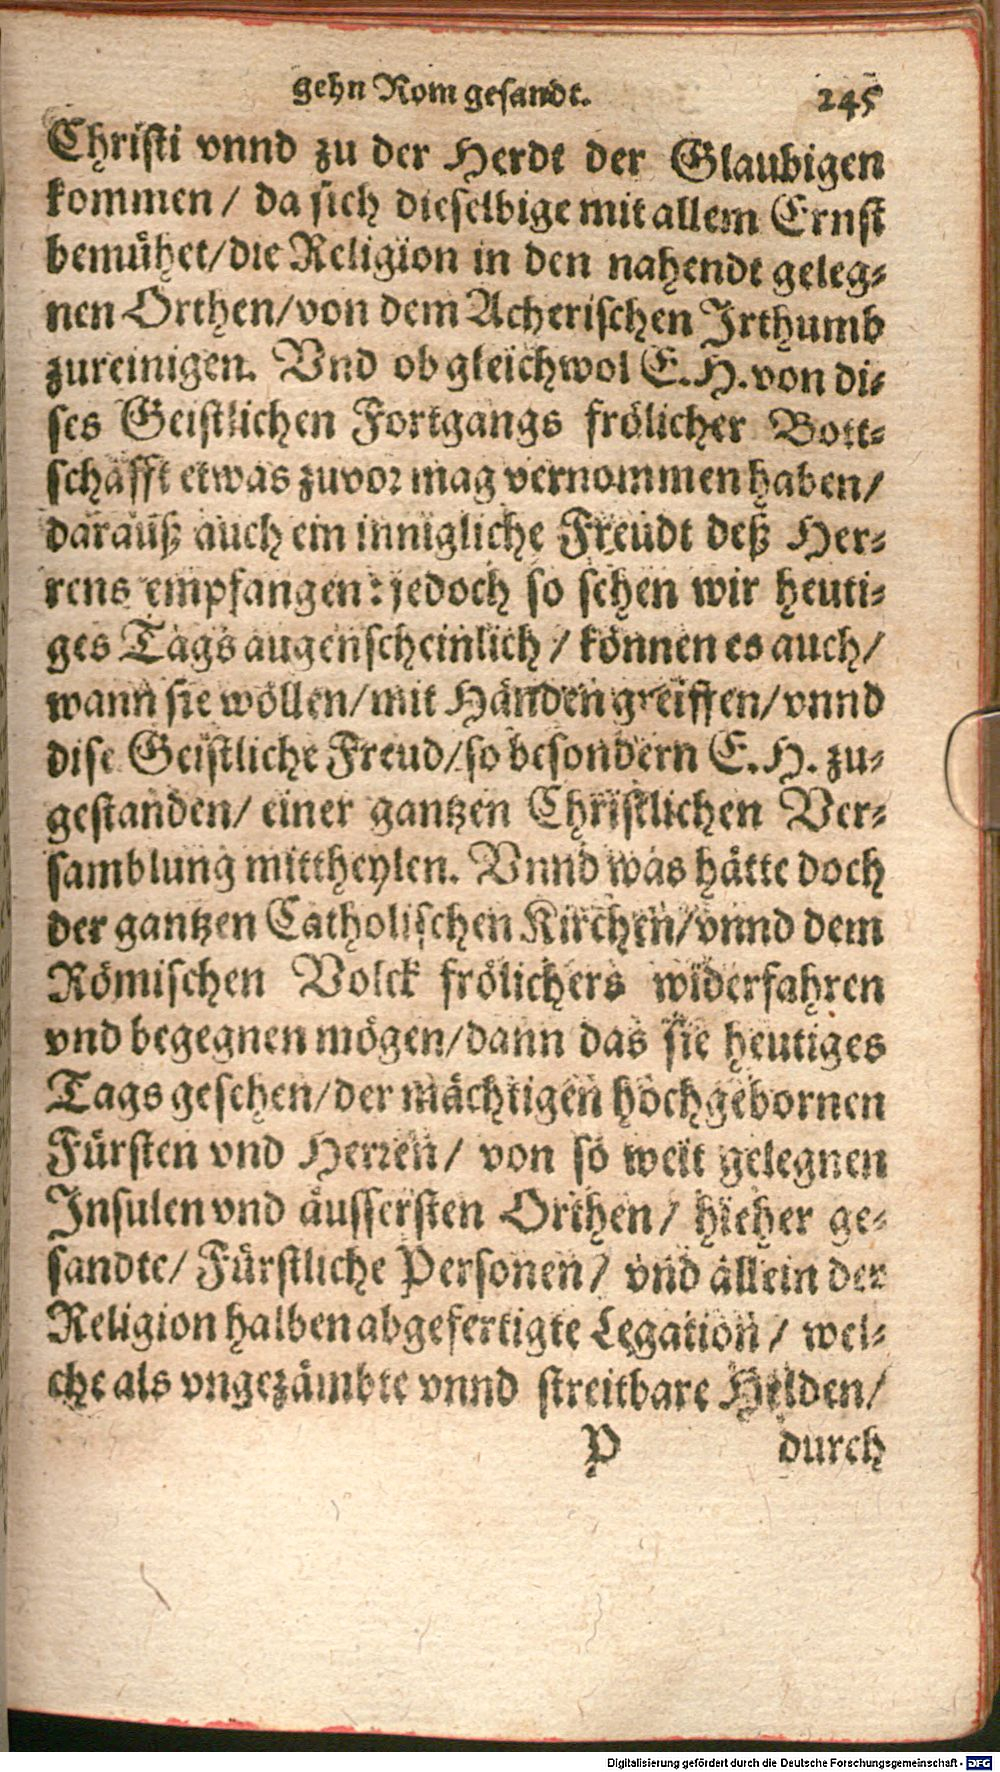 gehn Rom gesandt. 245
Christi vnnd zu der Herdt der Glaubigen
kommen / da sich dieselbige mit allem Ernst
bemühet/die Religion in den nahendt geleg-
nen Orthen/von dem Acherischen Irthumb
zureinigen. Vnd ob gleichwol E. H. von di-
ses Geistlichen Fortgangs frölicher Bott-
schafft etwas zuvor mag vernommen haben/
darauß auch ein innigliche Freudt deß Her-
rens empfangen: jedoch so sehen wir heuti-
ges Tags augenscheinlich / können es auch/
wann sie wöllen/mit Händen greiffen/vnnd
dise Geistliche Freud/so besondern E. H. zu-
gestanden/ einer gantzen Christlichen Ver-
samblung mittheylen. Vnnd was hätte doch
der gantzen Catholischen Kirchen/vnnd dem
Römischen Volck frölichers widerfahren
vnd begegnen mögen/dann das sie heutiges
Tags gesehen/der mächtigen hochgebornen
Fürsten vnd Herren/ von so weit gelegnen
Insulen vnd äussersten Orthen/ hieher ge-
sandte/ Fürstliche Personen/ vnd allein der
Religion halben abgefertigte Legation/ wel-
che als vngezämbte vnnd streitbare Helden/
P durch
Digitalisierung gefördert durch die Deutsche Forschungsgemeinschaft - DFG